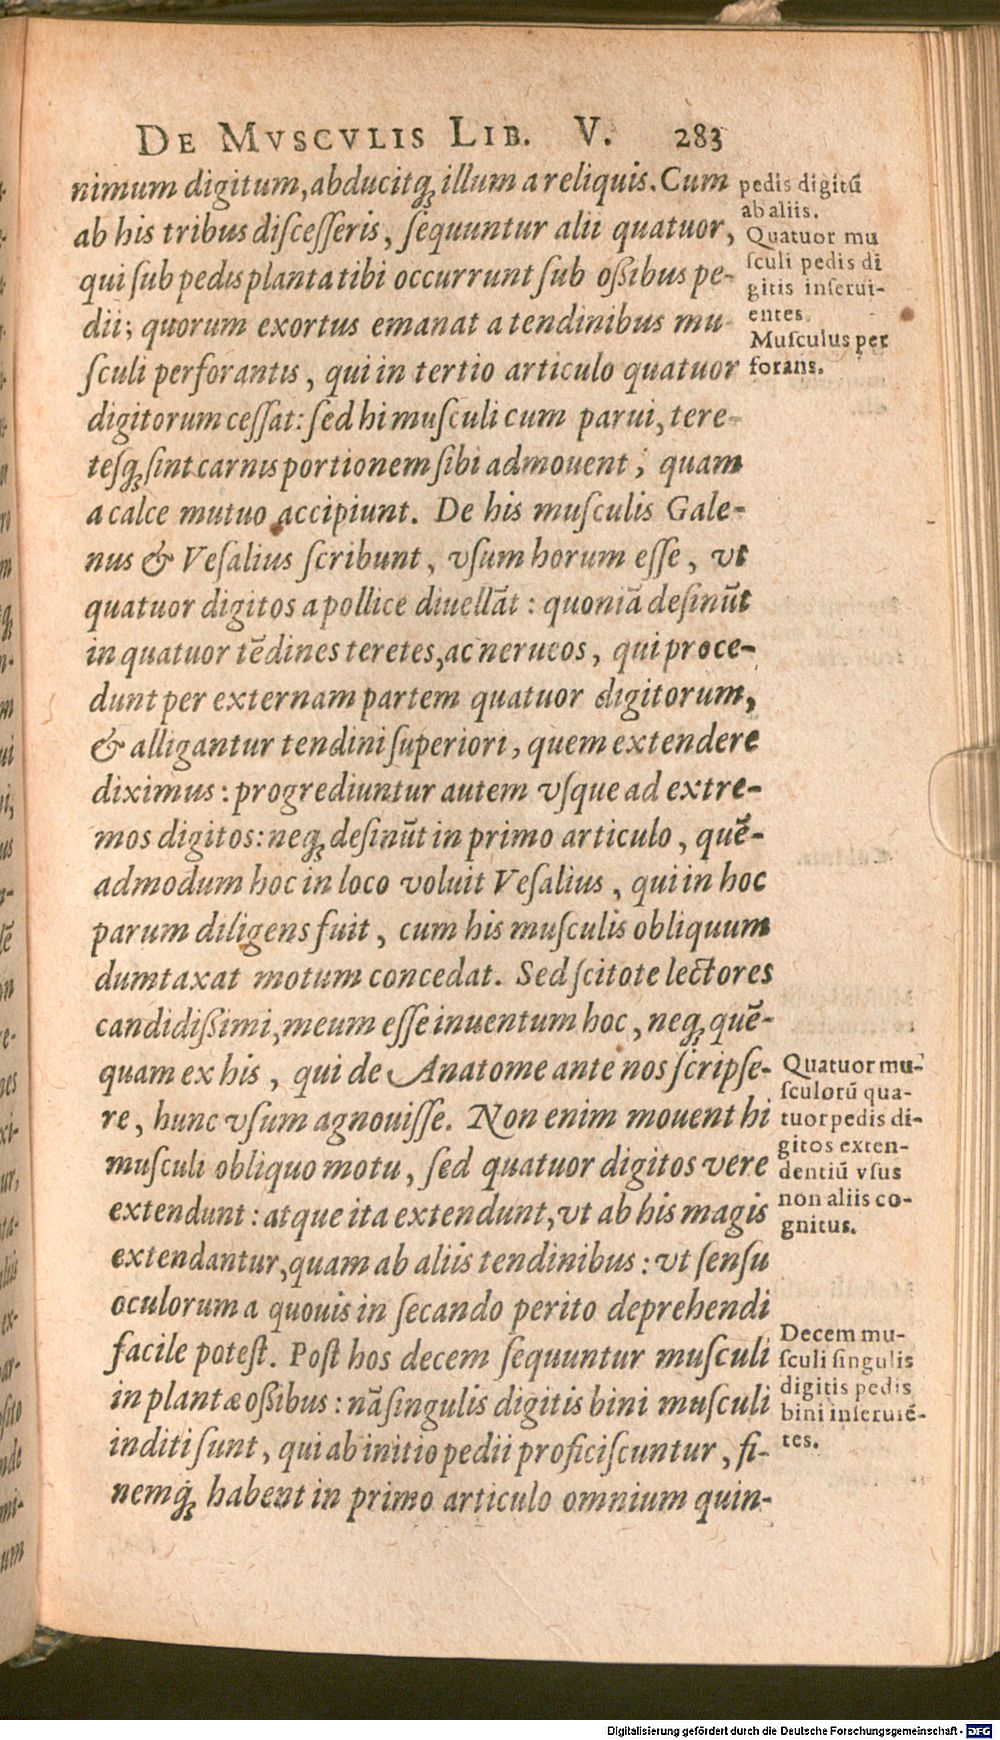 DE MVSCVLIS LIB. V. 283
nimum digitum, abducitq́; illum a reliquis. Cum
ab his tribus discesseris, sequuntur alii quatuor,
qui sub pedis planta tibi occurrunt sub oßibus pe-
dii; quorum exortus emanat a tendinibus mu
sculi perforantis, qui in tertio articulo quatuor
digitorum cessat: sed hi musculi cum parui, tere-
tesq; sint carnis portionem sibi admouent; quam
a calce mutuo accipiunt. De his musculis Gale-
nus & Vesalius scribunt, vsum horum esse, vt
quatuor digitos a pollice diuellāt: quoniā desinūt
in quatuor tēdines teretes, ac nerueos, qui proce-
dunt per externam partem quatuor digitorum,
& alligantur tendini superiori, quem extendere
diximus: progrediuntur autem vsque ad extre-
mos digitos: neq; desinūt in primo articulo, quē-
admodum hoc in loco voluit Vesalius, qui in hoc
parum diligens fuit, cum his musculis obliquum
dumtaxat motum concedat. Sed scitote lectores
candidißimi, meum esse inuentum hoc, neq; quē-
quam ex his, qui de Anatome ante nos scripse-
re, hunc vsum agnouisse. Non enim mouent hi
musculi obliquo motu, sed quatuor digitos vere
extendunt: atque ita extendunt, vt ab his magis
extendantur, quam ab aliis tendinibus: vt sensu
oculorum a quouis in secando perito deprehendi
facile potest. Post hos decem sequuntur musculi
in plantæ oßibus: nā singulis digitis bini musculi
inditi sunt, qui ab initio pedii proficiscuntur, fi-
nemq́; habent in primo articulo omnium quin-
pedis digitū
ab aliis.
Quatuor mu
sculi pedis di
gitis inserui-
entes.
Musculus per
forans.
Quatuor mu-
sculorū qua-
tuor pedis di-
gitos exten-
dentiū vsus
non aliis co-
gnitus.
Decem mu-
sculi singulis
digitis pedis
bini inseruiē-
tes.
Digitalisierung gefördert durch die Deutsche Forschungsgemeinschaft - DFG